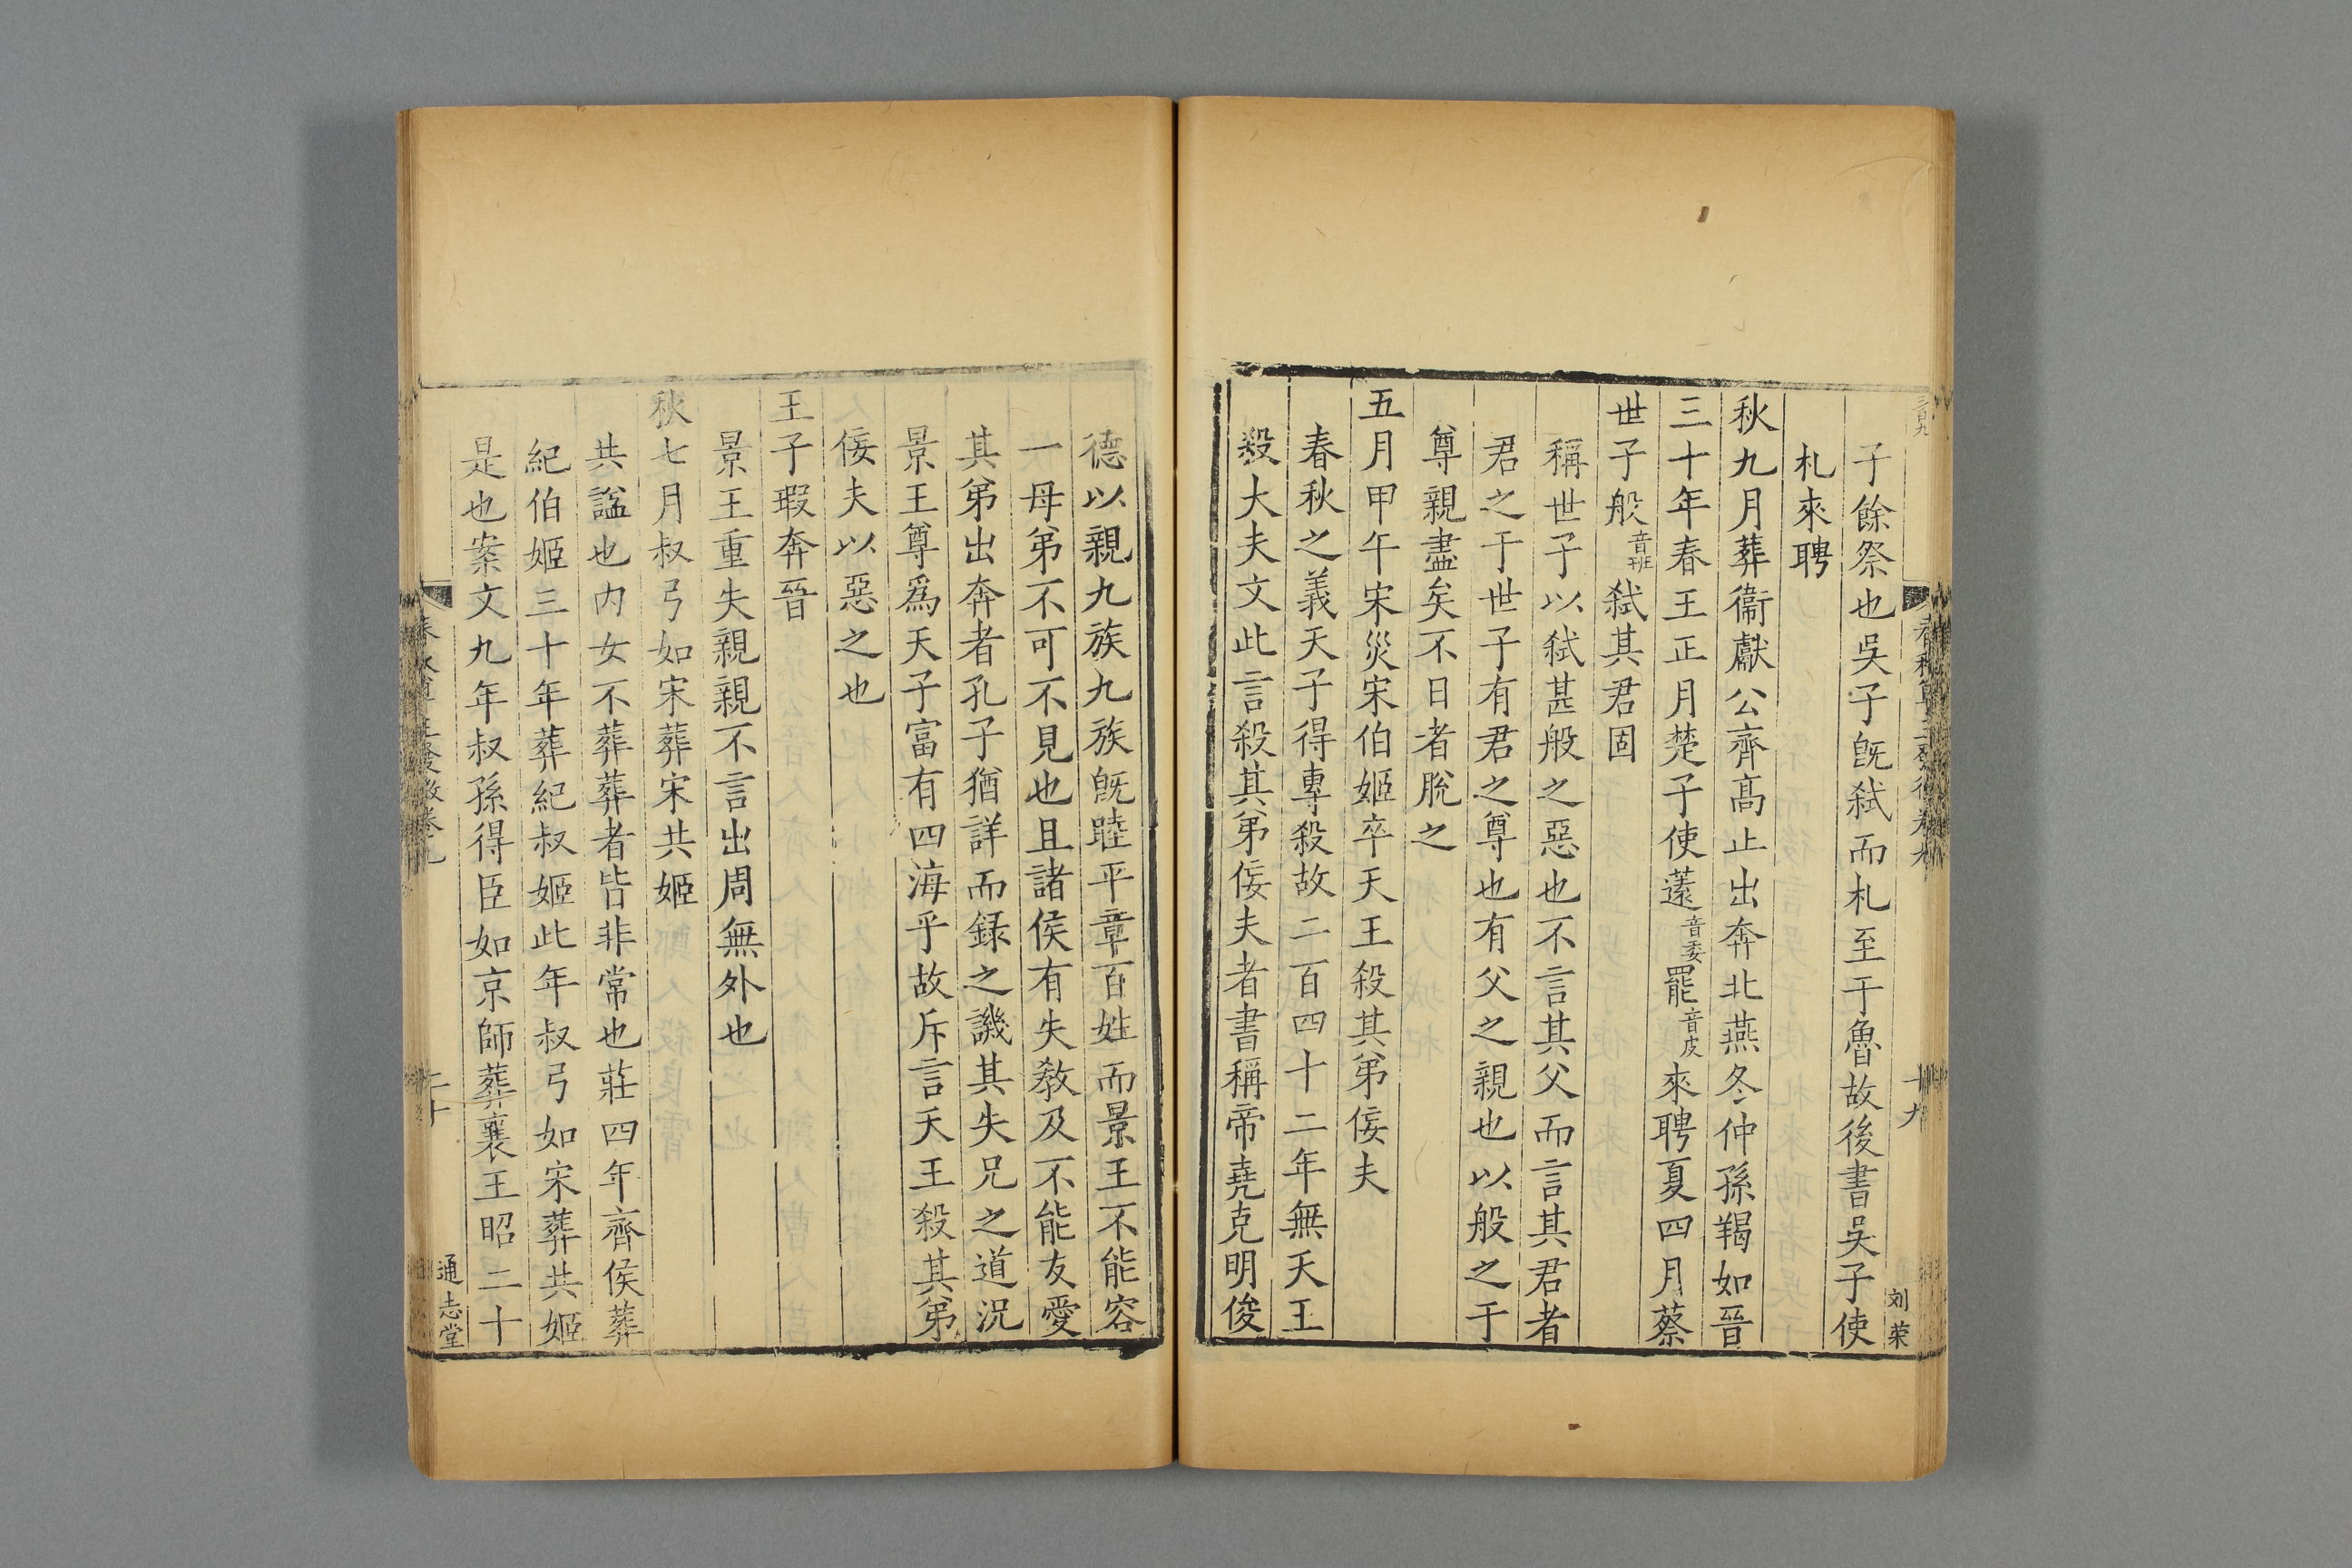 子餘祭也吳子旣弑而札至于魯故後書吳子使
札來聘
秋九月葬衞獻公齊髙止出奔北燕冬仲孫羯如晉
三十年春王正月楚子使薳音委罷音皮來聘夏四月蔡
世子般音班弑其君固
稱世子以弑甚般之惡也不言其父而言其君者
君之于世子有君之尊也有父之親也以般之于
尊親盡矣不日者脫之
五月甲午宋災宋伯姬卒天王殺其弟佞夫
春秋之義天子得專殺故二百四十二年無天王
殺大夫文此言殺其弟佞夫者書稱帝堯克明俊
德以親九族九族旣睦平章百姓而景王不能容
一母弟不可不見也且諸侯有失敎及不能友愛
其弟出奔者孔子猶詳而録之譏其失兄之道況
景王尊爲天子富有四海乎故斥言天王殺其弟
佞夫以惡之也
王子瑕奔晉
景王重失親親不言出周無外也
秋七月叔弓如宋葬宋共姬
共謚也内女不葬葬者皆非常也莊四年齊侯葬
紀伯姬三十年葬紀叔姬此年叔弓如宋葬共姬
是也案文九年叔孫得臣如京師葬襄王昭二十
十九
刘荣
二十
通志堂